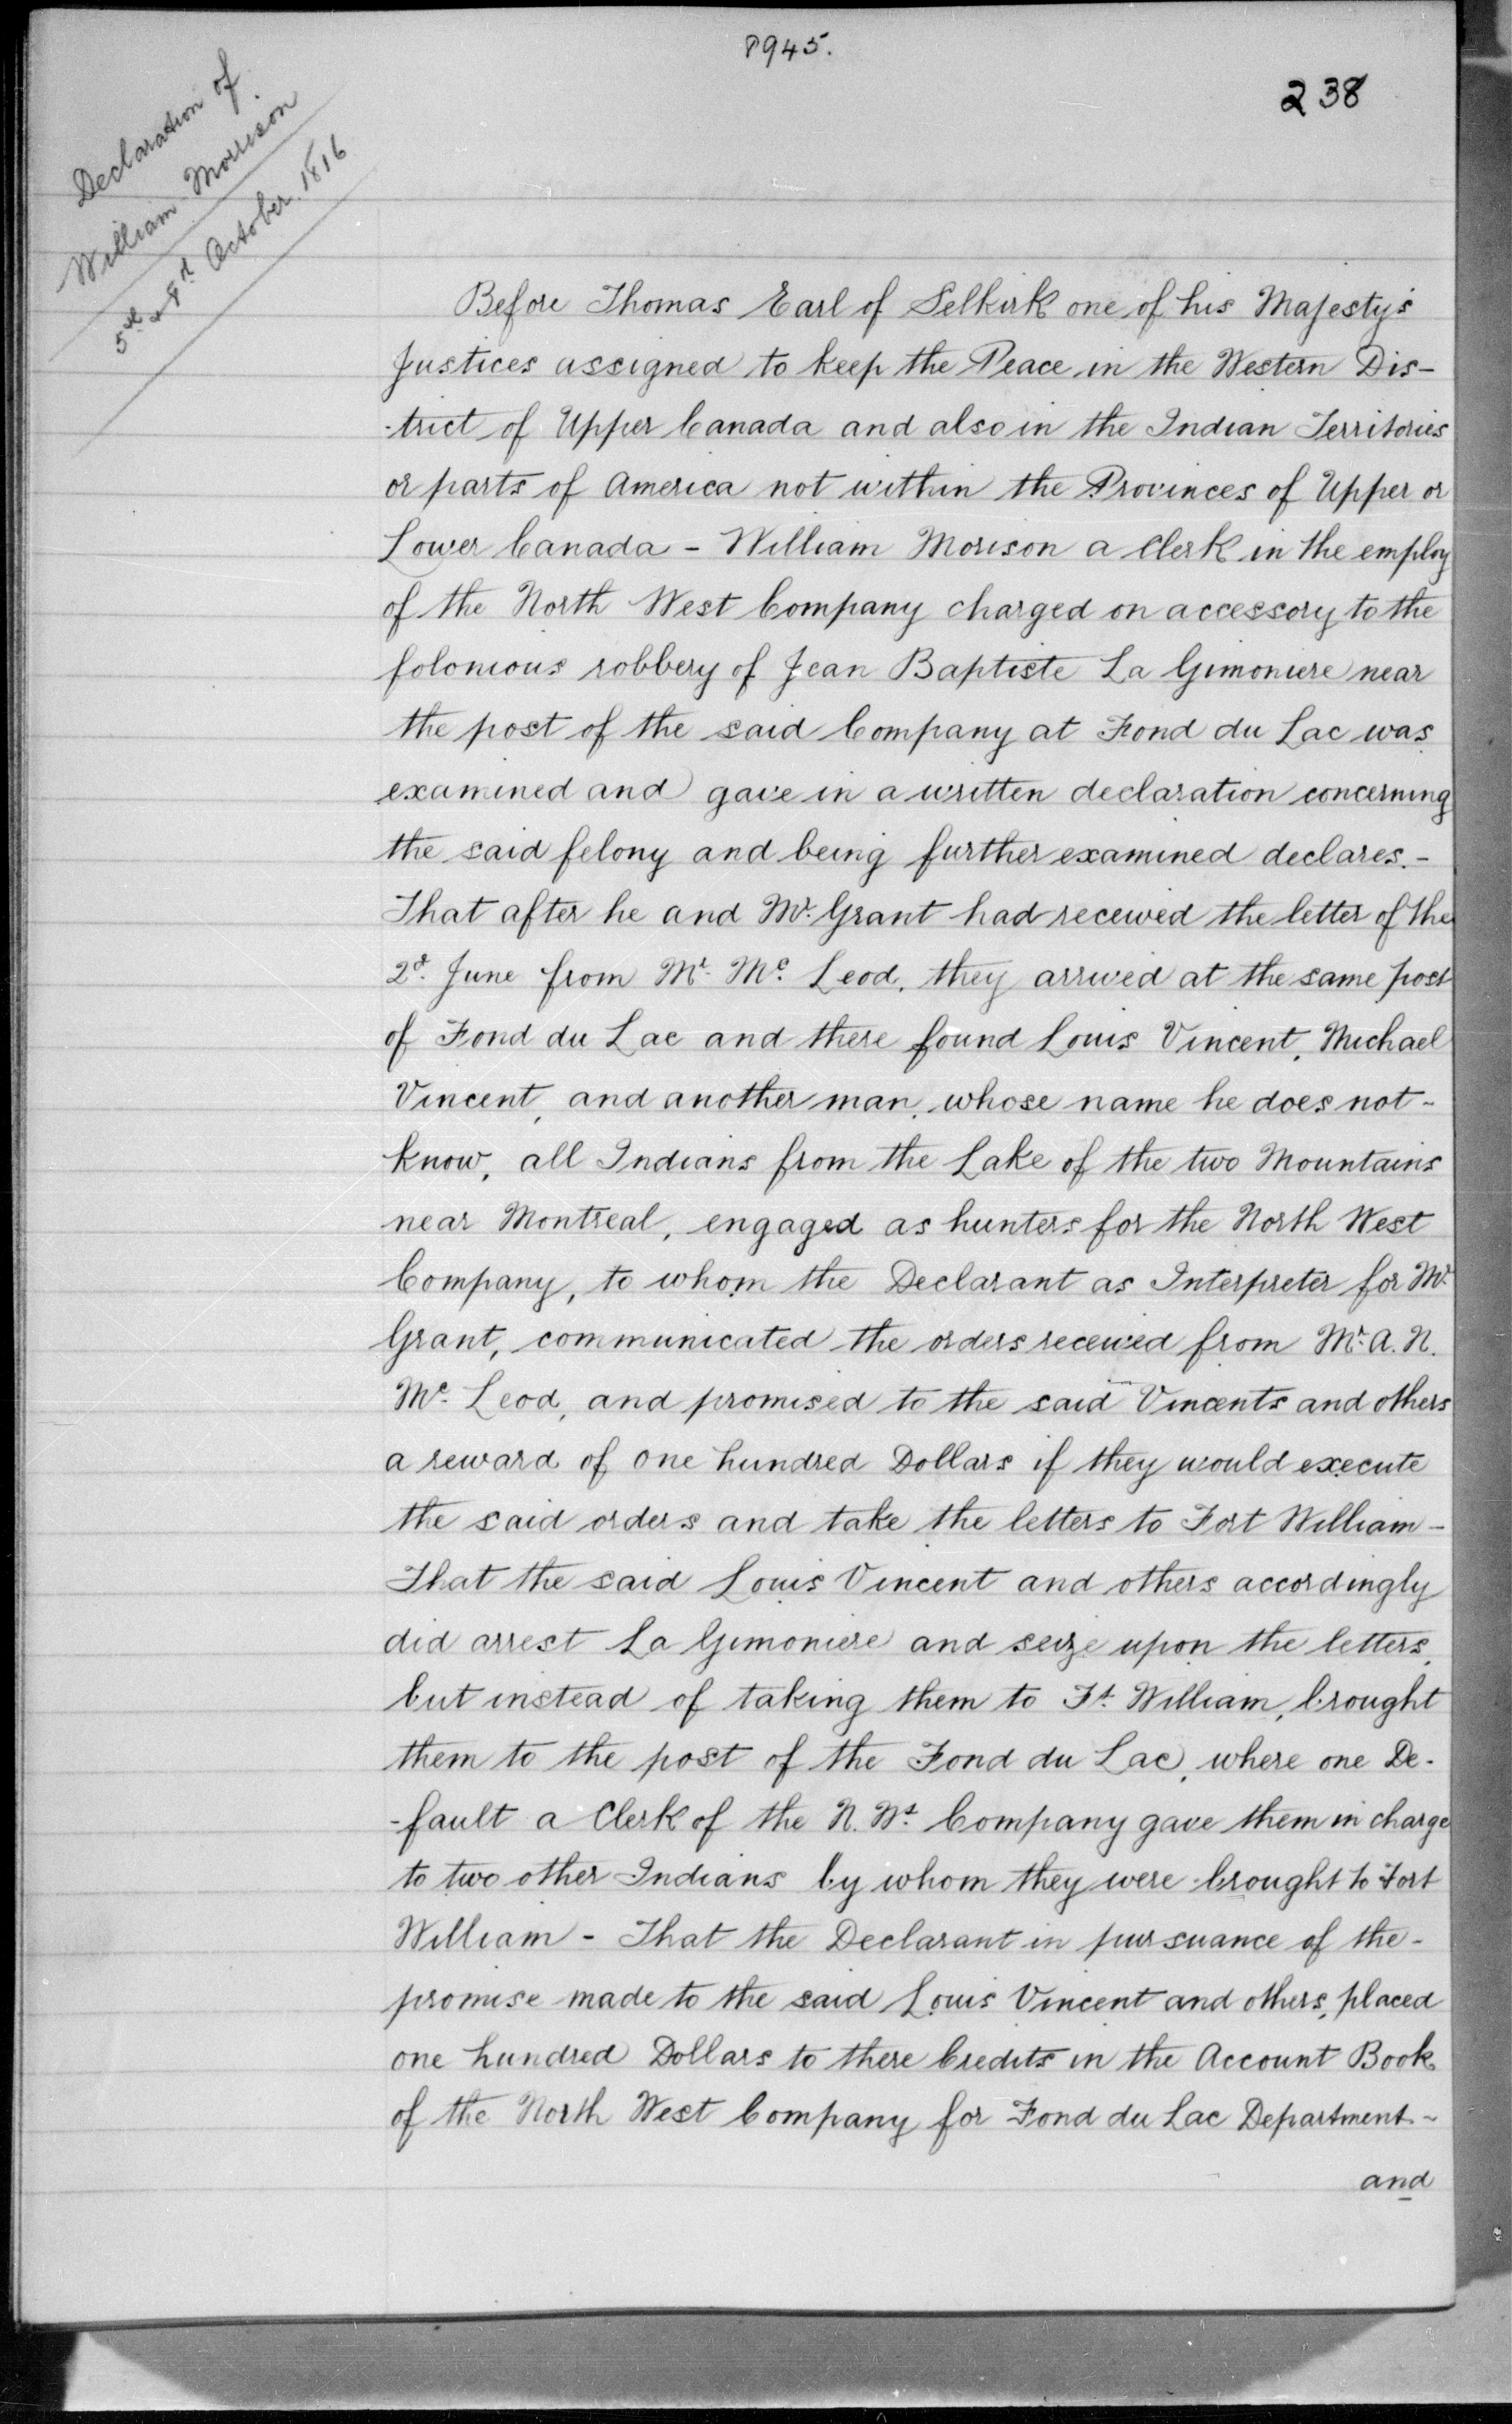 8945.
238
Declaration of
William Morrison
5th & 8d October 1816
Before Thomas Earl of Selkirk one of his Majesty's
Justices assigned to keep the Peace in the Western Dis-
-trict of Upper Canada and also in the Indian Territories
or parts of America not within the Provinces of Upper or
Lower Canada - William Morison a Clerk in the employ
of the North West Company charged on accessory to the
folonious robbery of Jean Baptiste La Gimoniere near
the post of the said Company at Fond du Lac was
examined and gave in a written declaration concerning
the said felony and being further examined declares. -
That after he and Mr. Grant had received the letter of the
2d. June from Mr. Mc. Leod, they arrived at the same post
of Fond du Lac and there found Louis Vincent, Michael
Vincent, and another man, whose name he does not -
know, all Indians from the Lake of the two Mountains
near Montreal, engaged as hunters for the North West
Company, to whom the Declarant as Interpreter for Mr.
Grant, communicated the orders received from Mr. A. N.
Mc. Leod, and promised to the said Vincents and others
a reward of one hundred Dollars if they would execute
the said orders and take the letters to Fort William -
That the said Louis Vincent and others accordingly
did arrest La Gimoniere and seize upon the letters,
but instead of taking them to Ft. William, brought
them to the post of the Fond du Lac, where one De-
-fault a Clerk of the N. Wt. Company gave them in charge
to two other Indians by whom they were brought to Fort
William - That the Declarant in pursuance of the -
promise made to the said Louis Vincent and others, placed
one hundred Dollars to there Credits in the Account Book
of the North West Company for Fond du Lac Department -
and